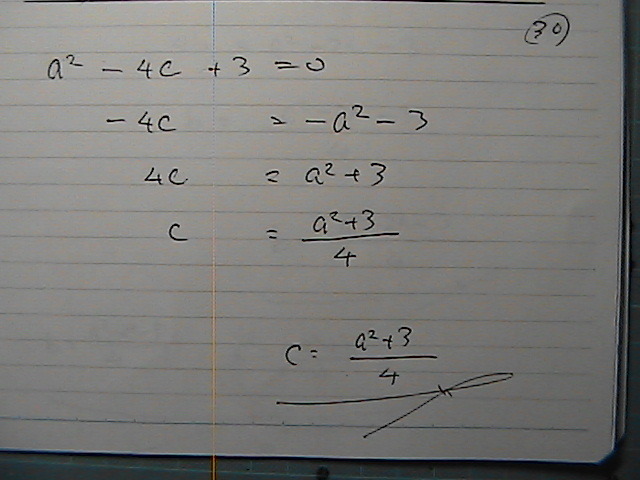 (30)
a² - 4c + 3 = 0
- 4c = - a² - 3
4c = a² + 3
c = a²+3 / 4
c = a²+3 / 4